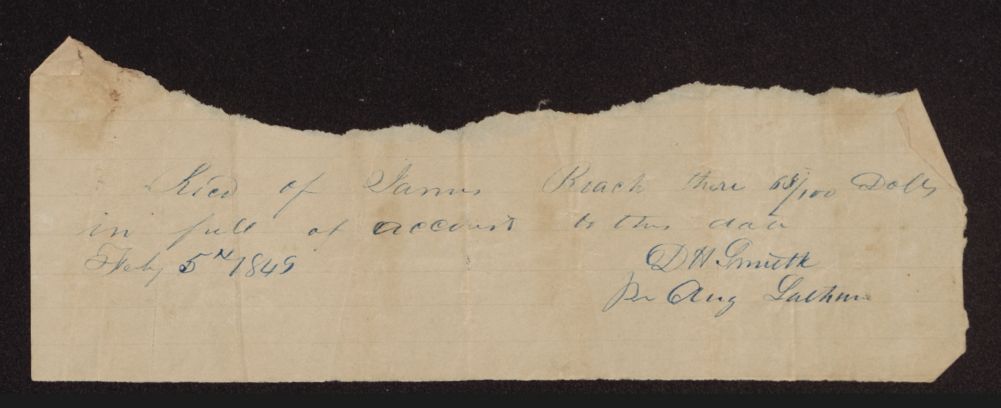 Recd of James Roach three 68/100 Dolls
in full of account to this date
Feby 5th 1849
D H Smith
Per Aug Latham